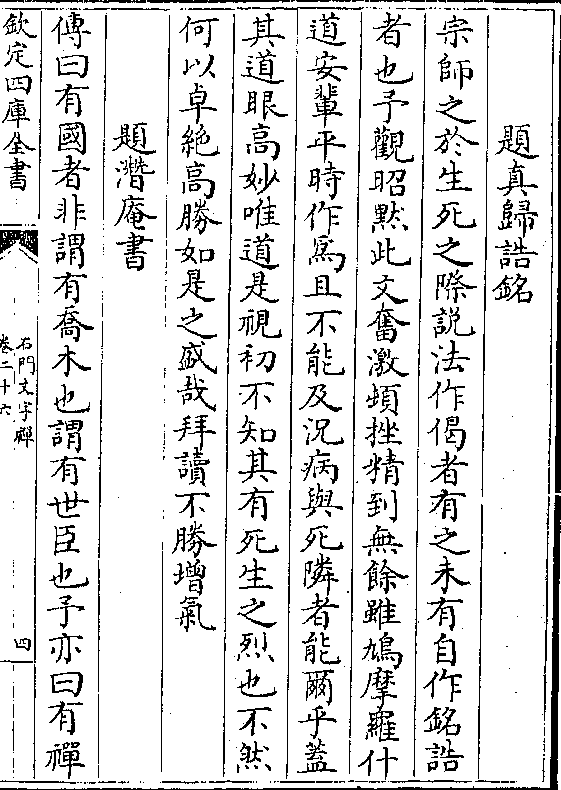 題真歸誥銘
宗師之於生死之際說法作偈者有之未有自作銘誥
者也予觀昭黙此文奮激頓挫精到無餘雖鳩摩羅什
道安輩平時作寫且不能及況病與死隣者能爾乎蓋
其道眼高妙唯道是視初不知其有死生之烈也不然
何以卓絶高勝如是之盛哉拜讀不勝増氣
題潛庵書
傳曰有國者非謂有喬木也謂有世臣也予亦曰有禪
欽定四庫全書
石門文字禪
卷二十六
四